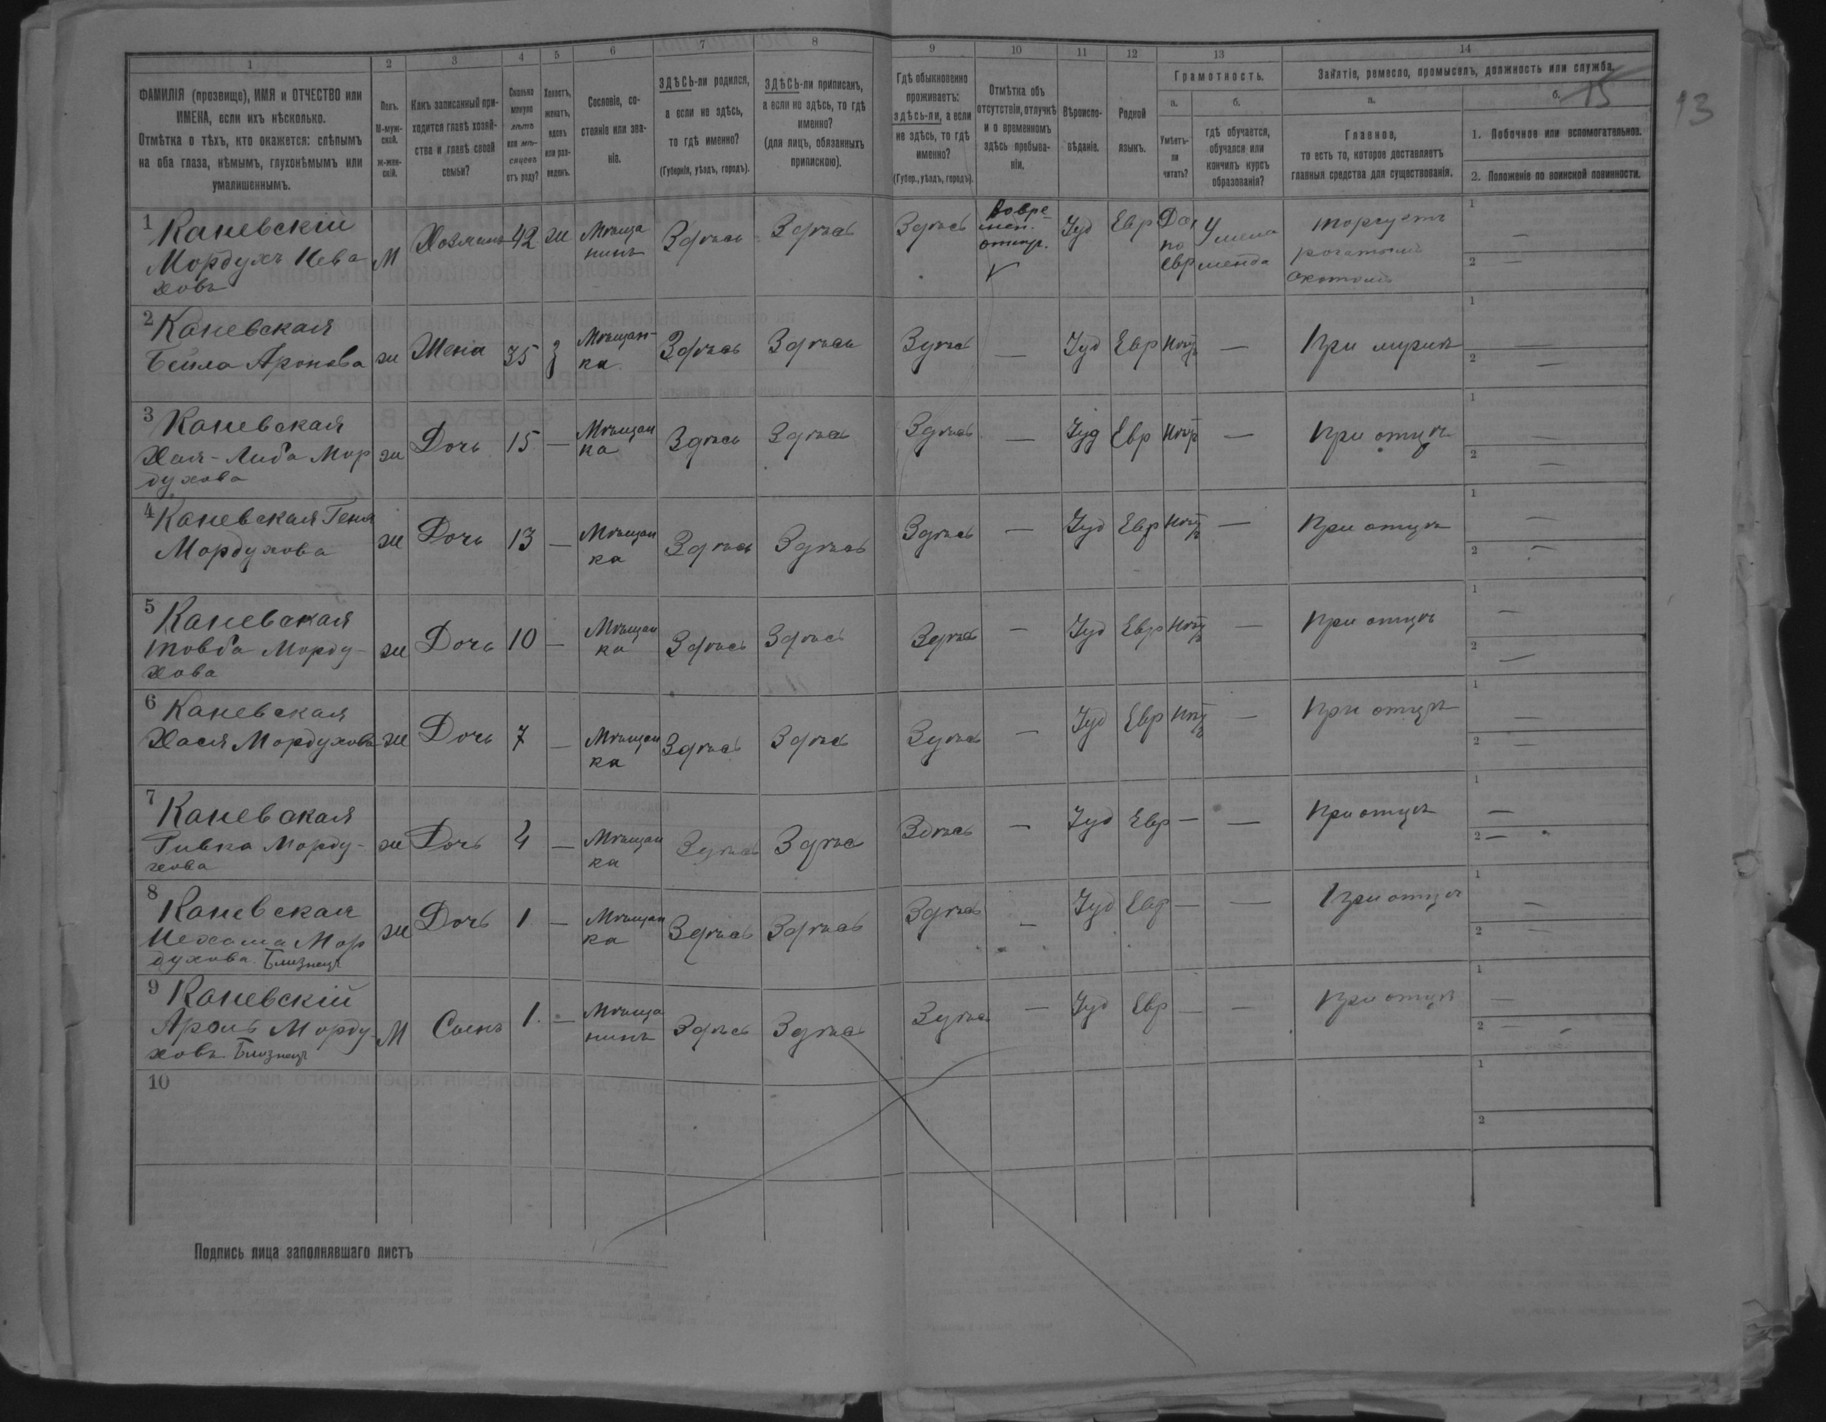 1 2 3 4 5 6 7 8 9 10 11 12 13 14
ФАМИЛІЯ (прозвище), ИМЯ и ОТЧЕСТВО или
ИМЕНА, если ихъ нѣсколько.
Отмѣтка о тѣхъ, кто окажется: слѣпымъ
на оба глаза, нѣмымъ, глухонѣмымъ или
умалишеннымъ.
Полъ.
М-муж-
ской.
ж-жен-
скій.
Какъ записанный при-
ходится главѣ хозяй-
ства и главѣ своей
семьи?
Сколько
минуло
лѣтъ
или мѣ-
сяцевъ
отъ роду?
Холостъ,
женатъ,
вдовъ
или раз-
веденъ.
Сословіе, со-
стояніе или зва-
ніе.
ЗДѢСЬ-ли родился,
а если не здѣсь,
то гдѣ именно?
(Губернія, уѣздъ, городъ).
ЗДѢСЬ-ли приписанъ,
а если не здѣсь, то гдѣ
именно?
(для лицъ, обязанныхъ
припискою).
Гдѣ обыкновенно
проживаетъ:
здѣсь-ли, а если
не здѣсь, то гдѣ
именно?
(Губер., уѣздъ, городъ).
Отмѣтка объ
отсутствіи, отлучкѣ
и о временномъ
здѣсь пребыва-
ніи.
Вѣроиспо-
вѣданіе.
Родной
языкъ.
Грамотность.
а.
Умѣетъ-
ли
читать?
б.
гдѣ обучается,
обучался или
кончилъ курсъ
образованія?
Занятіе, ремесло, промыселъ, должность или служба.
а.
Главное,
то есть то, которое доставляетъ
главныя средства для существованія.
б.
1. Побочное или вспомогательное.
2. Положеніе по воинской повинности.
15
13
1 Каневскій
Мордухъ Іева
ховъ
М Хозяинъ 42 ж Мѣща
нинъ Здѣсь Здѣсь Здѣсь Вовре-
мен.
отлуч. Іуд Евр Да,
по
евр У мела
меда торгуетъ
рогатымъ
скотомъ 1 — 2 —
2 Каневская
Бейла Аронова ж Жена 35 з Мѣщан-
ка Здѣсь Здѣсь Здѣсь — Іуд Евр Нѣтъ — При мужѣ 1 — 2 —
3 Каневская
Хая-Либа Мор
духова ж Дочь 15 — Мѣщан
ка Здѣсь Здѣсь Здѣсь — Іуд Евр Нѣтъ — При отцѣ 1 — 2 —
4 Каневская Геня
Мордухова ж Дочь 13 — Мѣщан
ка Здѣсь Здѣсь Здѣсь — Іуд Евр Нѣтъ — При отцѣ 1 — 2 —
5 Каневская
Товба Морду-
хова ж Дочь 10 — Мѣщан
ка Здѣсь Здѣсь Здѣсь — Іуд Евр Нѣтъ — При отцѣ 1 — 2 —
6 Каневская
Хася Мордухова ж Дочь 7 — Мѣщан
ка Здѣсь Здѣсь Здѣсь — Іуд Евр Нѣтъ — При отцѣ 1 — 2 —
7 Каневская
Ривка Морду-
хова ж Дочь 4 — Мѣщан
ка Здѣсь Здѣсь Здѣсь — Іуд Евр — — При отцѣ 1 — 2 —
8 Каневская
Нехама Мор
духова Близнецъ ж Дочь 1 — Мѣщан
ка Здѣсь Здѣсь Здѣсь — Іуд Евр — — При отцѣ 1 — 2 —
9 Каневскій
Аронъ Морду
ховъ Близнецъ М Сынъ 1 — Мѣща
нинъ Здѣсь Здѣсь Здѣсь — Іуд Евр — — При отцѣ 1 — 2 —
10 1 2
Подпись лица заполнявшаго листъ